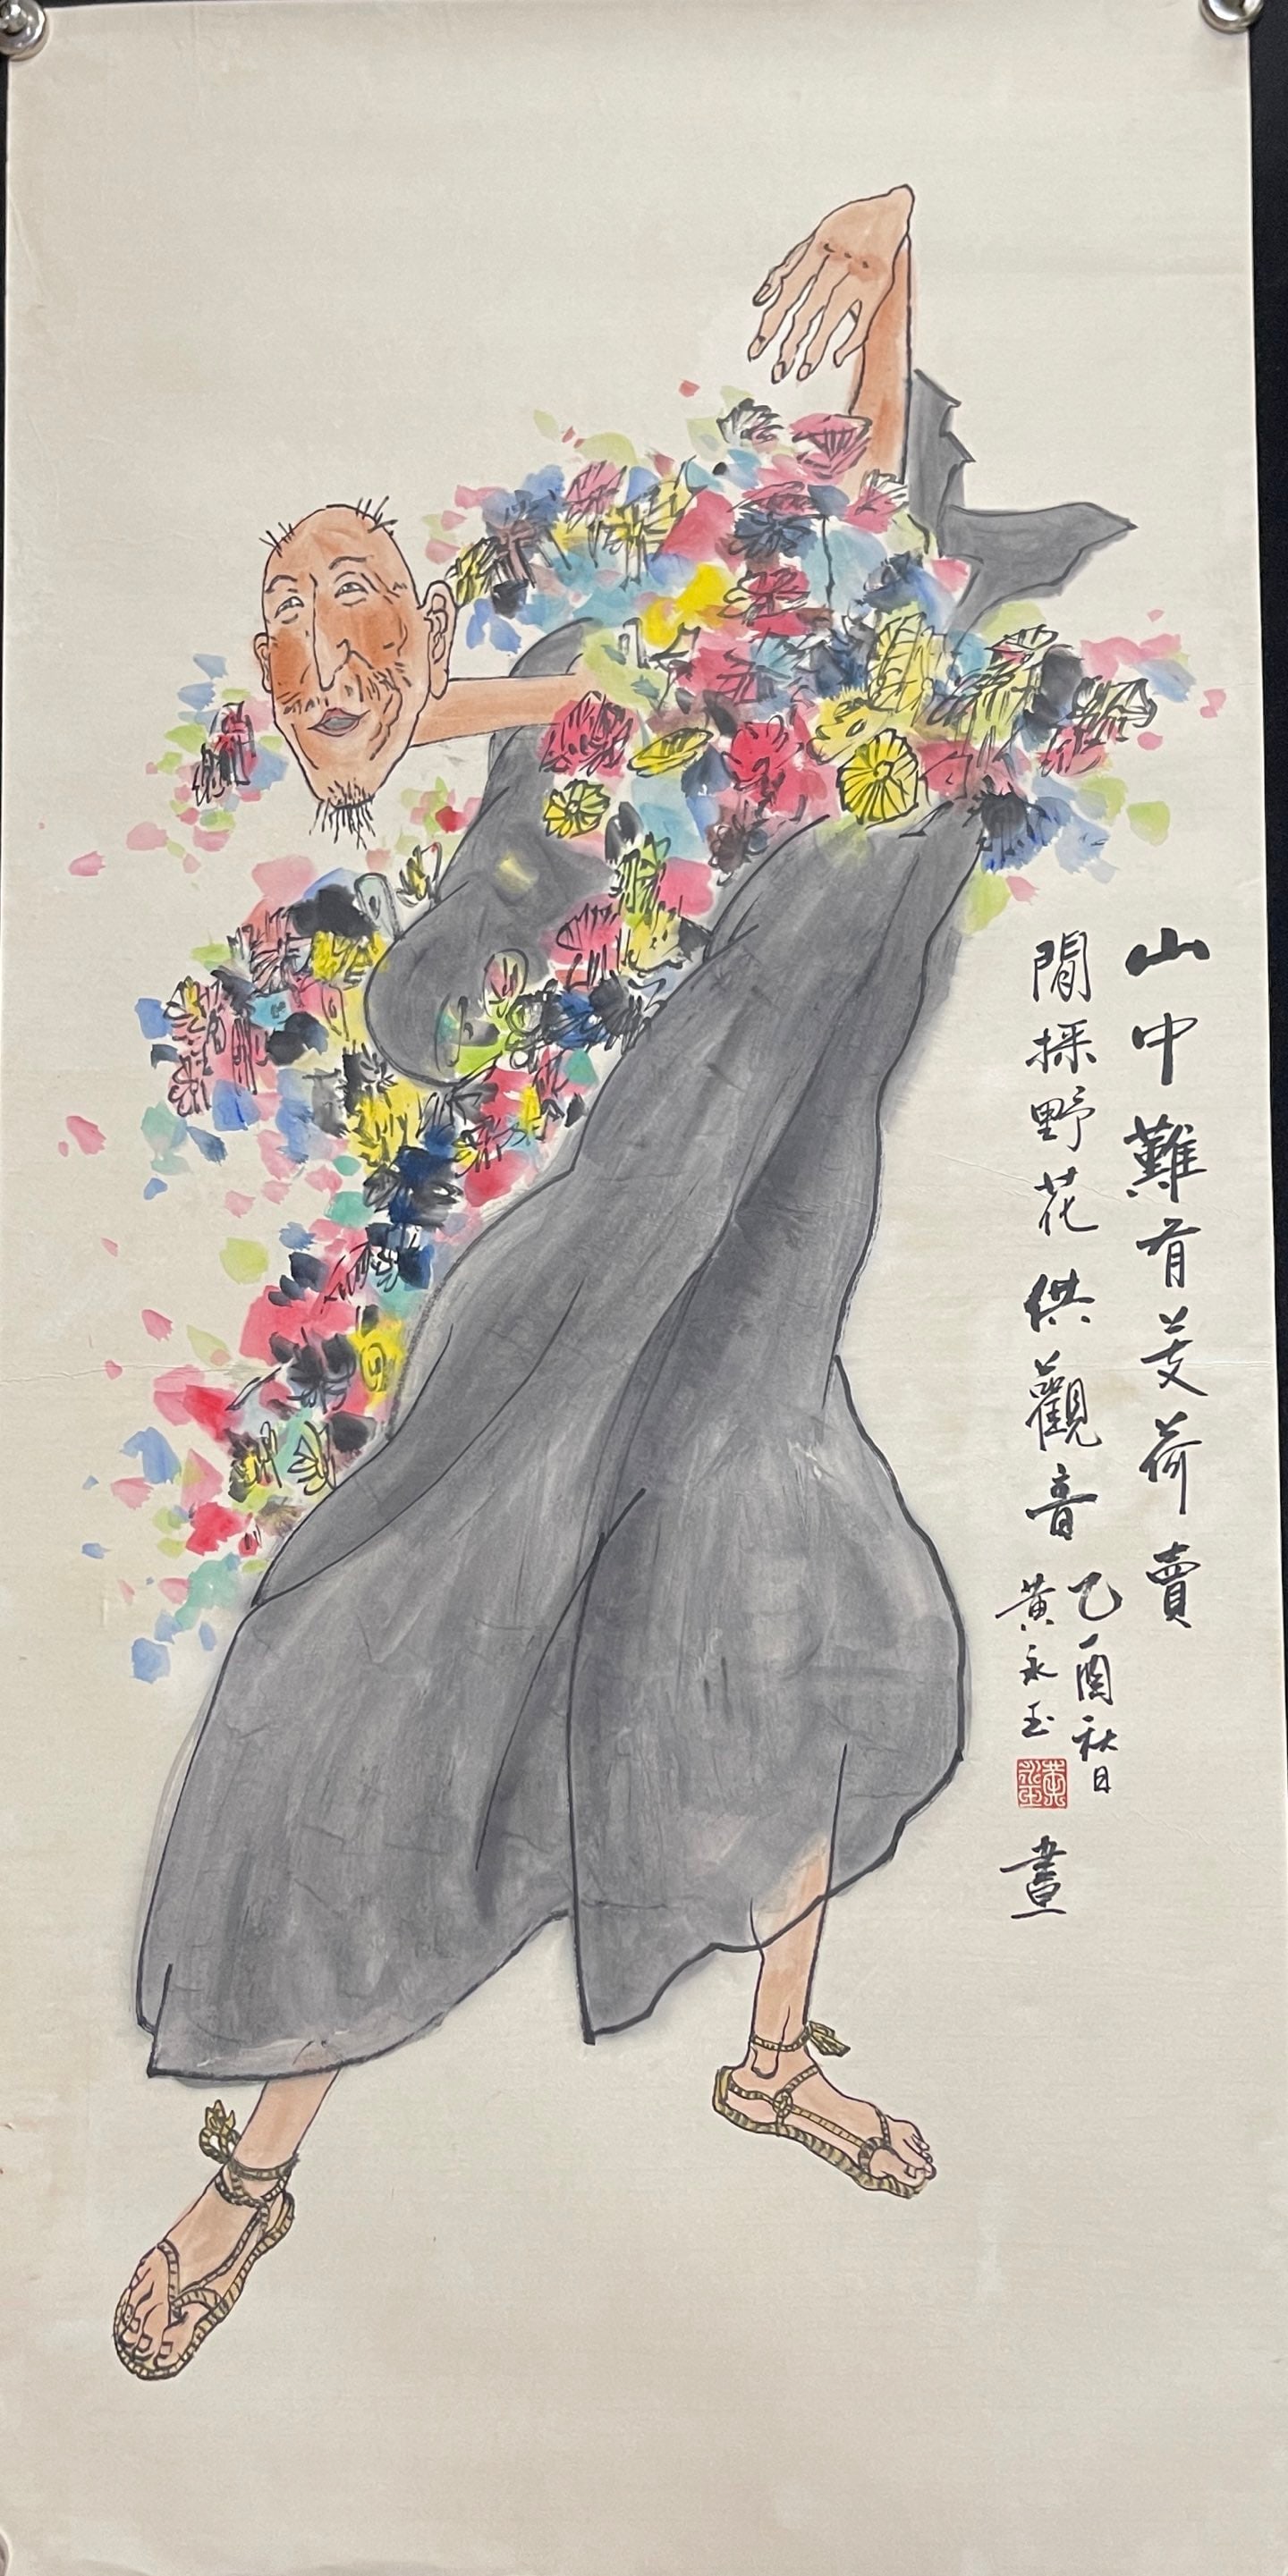 山中難有芰荷賣
閒採野花供觀音
乙酉秋日
黃永玉
畫
黃永玉